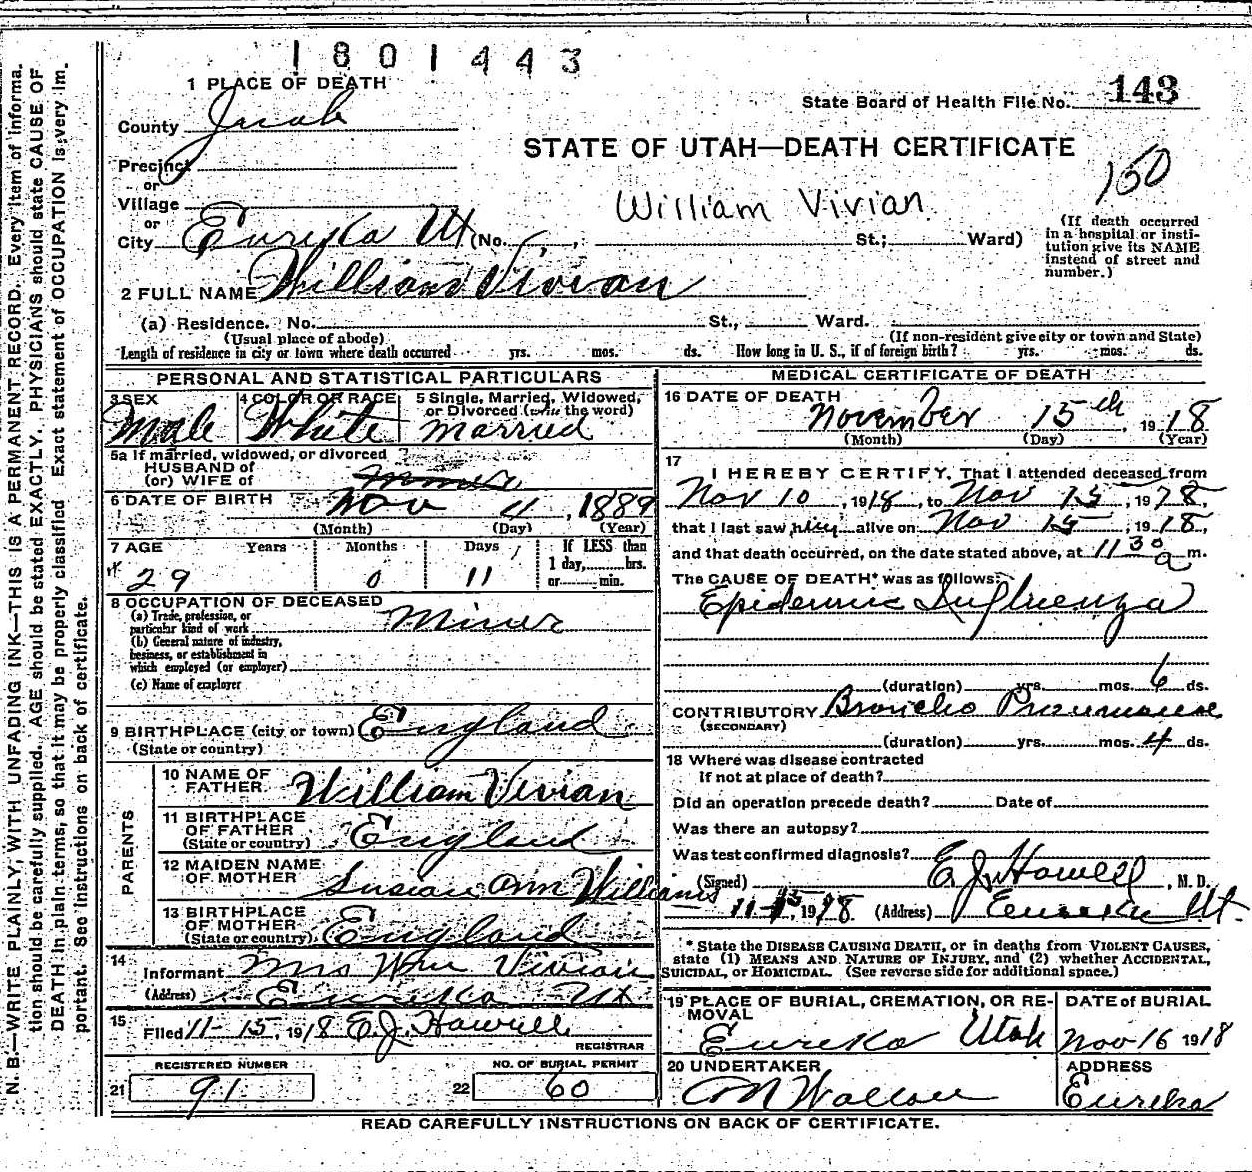 1801443
1 PLACE OF DEATH
State Board of Health File No. 143
County Juab
STATE OF UTAH—DEATH CERTIFICATE
150
Precinct
or
Village
William Vivian
or
City Eureka Ut (No. St.; Ward)
(If death occurred
in a hospital or insti-
tution give its NAME
instead of street and
number.)
2 FULL NAME William Vivian
(a) Residence. No. St., Ward.
(Usual place of abode) (If non-resident give city or town and State)
Length of residence in city or town where death occurred yrs. mos. ds. How long in U. S., if of foreign birth? yrs. mos. ds.
PERSONAL AND STATISTICAL PARTICULARS
3 SEX Male
4 COLOR OR RACE White
5 Single, Married, Widowed,
or Divorced (write the word)
Married
5a If married, widowed, or divorced
HUSBAND of
(or) WIFE of Miner
6 DATE OF BIRTH Nov 4, 1889
(Month) (Day) (Year)
7 AGE Years Months Days If LESS than
1 day, hrs.
or min.
29 0 11
8 OCCUPATION OF DECEASED
(a) Trade, profession, or
particular kind of work Miner
(b) General nature of industry,
business, or establishment in
which employed (or employer)
(c) Name of employer
9 BIRTHPLACE (city or town) England
(State or country)
PARENTS
10 NAME OF
FATHER William Vivian
11 BIRTHPLACE
OF FATHER
(State or country) England
12 MAIDEN NAME
OF MOTHER Susian Ann Williams
13 BIRTHPLACE
OF MOTHER
(State or country) England
14
Informant Mrs Wm Vivian
(Address) Eureka Ut
15
Filed 11-15, 1918 E.J. Howell
REGISTRAR
REGISTERED NUMBER
21 91
NO. OF BURIAL PERMIT
22 60
MEDICAL CERTIFICATE OF DEATH
16 DATE OF DEATH
November 15th, 1918
(Month) (Day) (Year)
17
I HEREBY CERTIFY, That I attended deceased from
Nov 10, 1918, to Nov 15, 1918
that I last saw him alive on Nov 15, 1918,
and that death occurred, on the date stated above, at 11 30 a m.
The CAUSE OF DEATH* was as follows:
Epidemic Influenza
(duration) yrs. mos. 6 ds.
CONTRIBUTORY Broncho
(SECONDARY)
(duration) yrs. mos. 4 ds.
18 Where was disease contracted
if not at place of death?
Did an operation precede death? Date of
Was there an autopsy?
Was test confirmed diagnosis?
(Signed) E. J. Howell, M. D.
11-15, 1918 (Address) Eureka Ut.
* State the DISEASE CAUSING DEATH, or in deaths from VIOLENT CAUSES,
state (1) MEANS AND NATURE OF INJURY, and (2) whether ACCIDENTAL,
SUICIDAL, or HOMICIDAL. (See reverse side for additional space.)
19 PLACE OF BURIAL, CREMATION, OR RE-
MOVAL
Eureka Utah
DATE of BURIAL
Nov 16 1918
20 UNDERTAKER
ADDRESS
Eureka
READ CAREFULLY INSTRUCTIONS ON BACK OF CERTIFICATE.
N. B.—WRITE PLAINLY, WITH UNFADING INK—THIS IS A PERMANENT RECORD. Every item of informa-
tion should be carefully supplied. AGE should be stated EXACTLY. PHYSICIANS should state CAUSE OF
DEATH in plain terms, so that it may be properly classified. Exact statement of OCCUPATION is very im-
portant. See instructions on back of certificate.